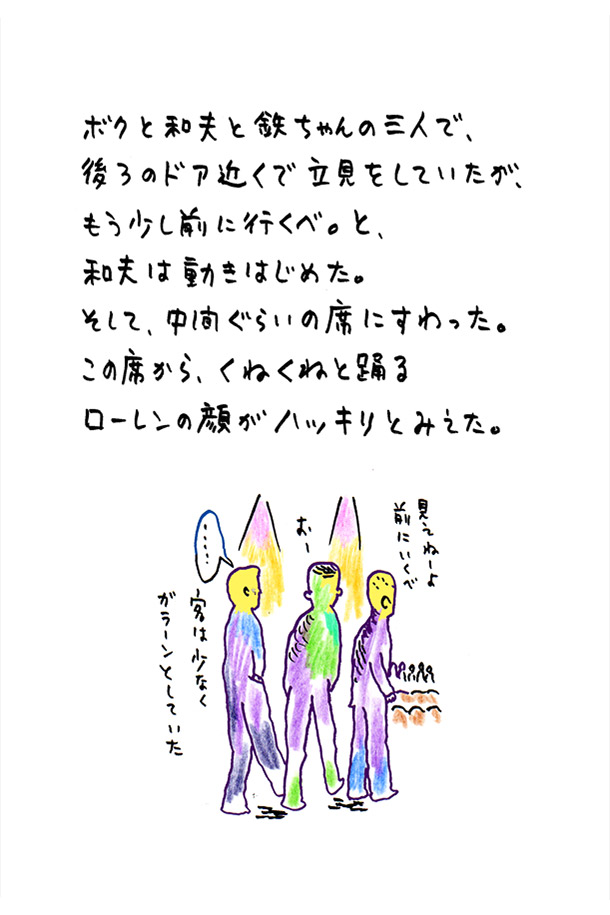 ボクと和夫と鉄ちゃんの三人で、
後ろのドア近くで立見をしていたが、
もう少し前に行くべ。と、
和夫は動きはじめた。
そして、中間ぐらいの席にすわった。
この席から、くねくねと踊る
ローレンの顔がハッキリとみえた。
見えねーよ
前にいくべ
おー
.....
客は少なく
ガラーンとしていた